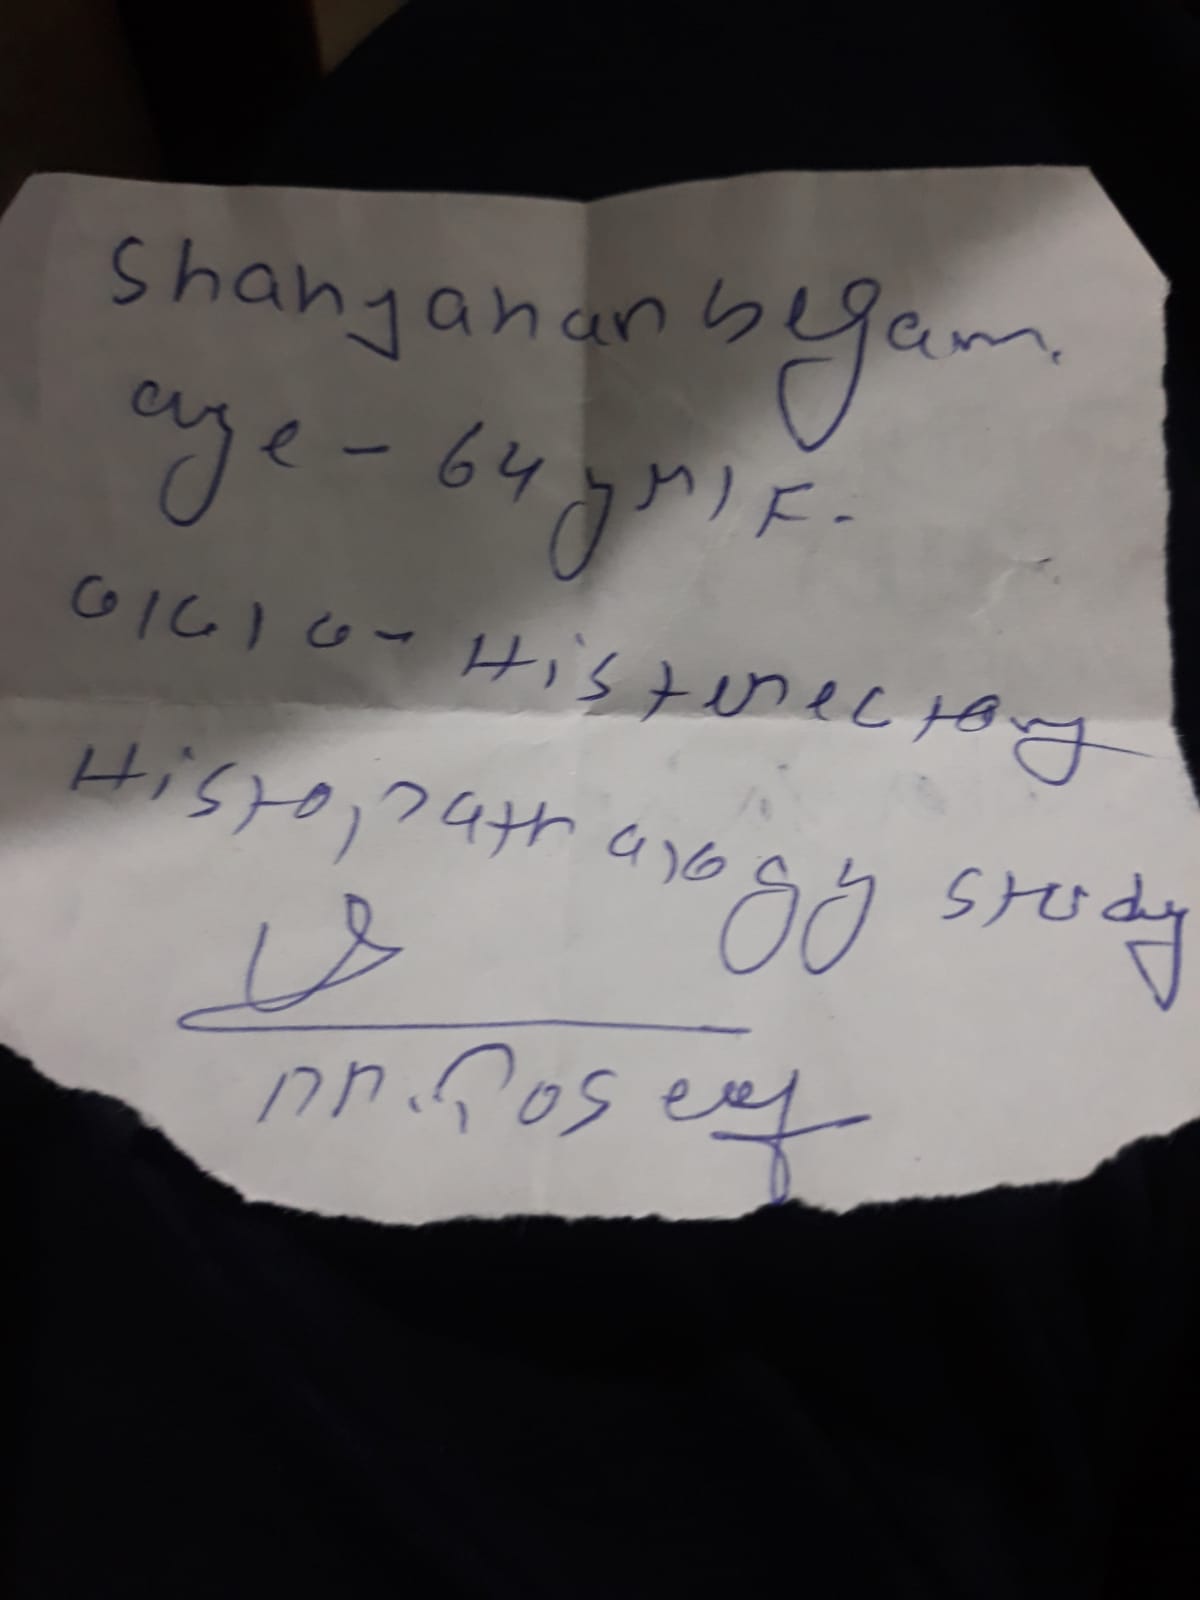 Shahjahan begam.
age - 64 yrs/F.
c/c/o - Histerectomy
Histo, pathology study